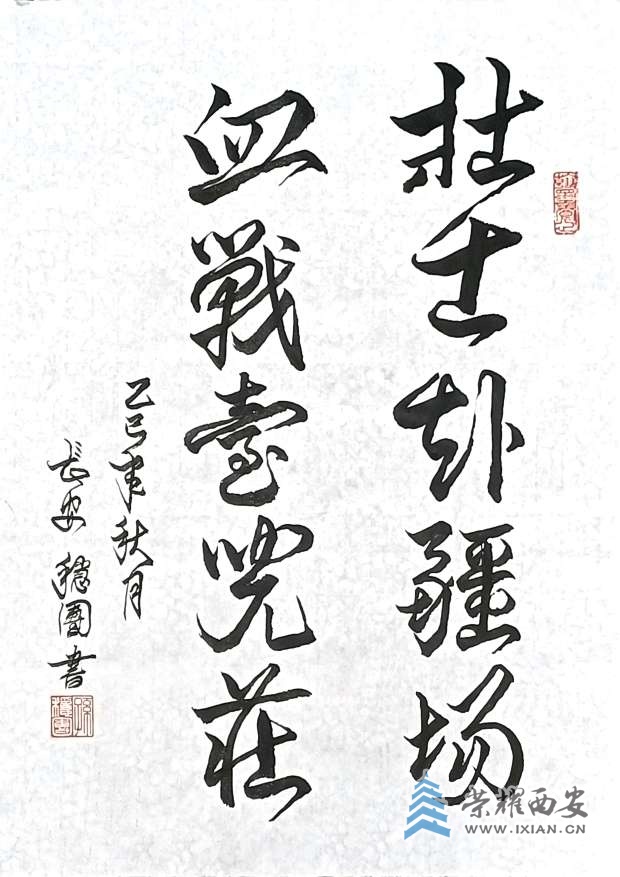 壮士赴疆场
血戰臺兒莊
乙巳年秋月
长安 穩圖書
荣耀西安
WWW.IXIAN.CN